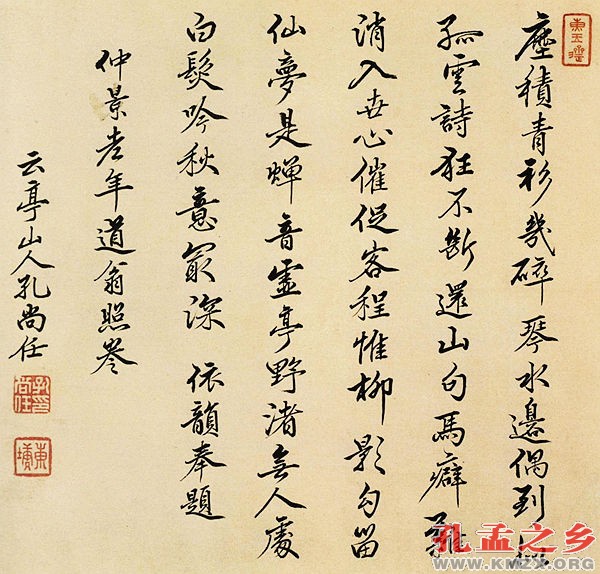 塵積青衫幾碎琴水邊偶到
孤雲詩狂不斷還山句馬癖難
消入世心催促客程惟柳影勾留
仙夢是蟬音虛亭野渚無人處
白髮吟秋意最深 依韻奉題
仲景老年道翁照
云亭山人孔尚任
東塘
孔孟之乡
WWW.KMZX.ORG